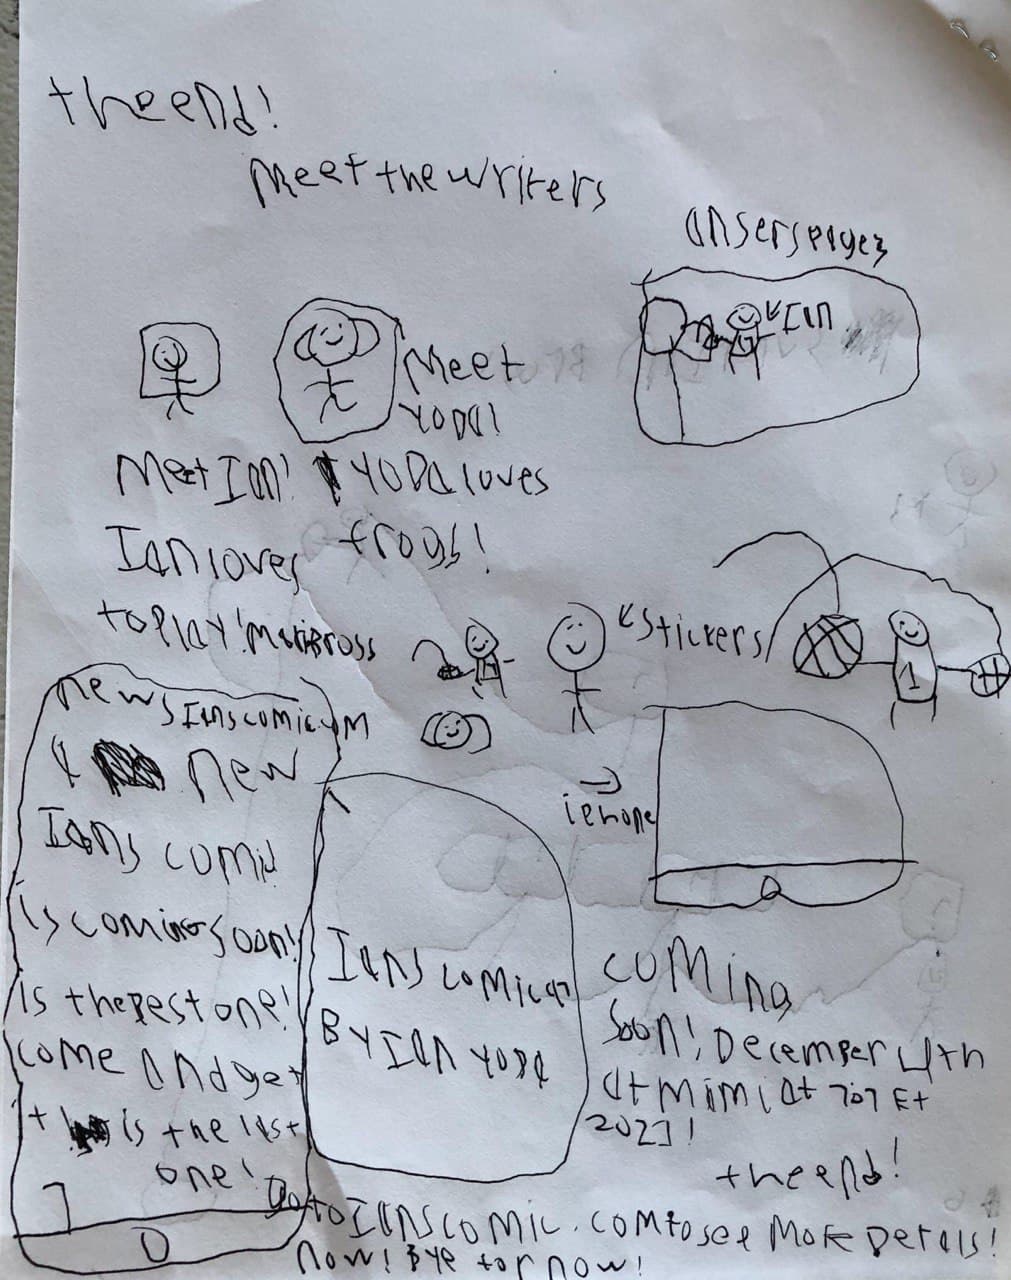 the end!
meet the writers
ansers pages
Ian
Meet
YODA!
Meet Ian!
YODA loves
frogs!
Ian loves
to play! Maribross
stickers
1
news Ianscomic
new
Ians comic
is coming soon!
is the pest one!
come and get
t is the last
one!
Ians comic
By Ian YODA
iehone
coming
soon! December 4th
at mimi at 7:07 Et
2023!
the end!
Go to Ianscomic.com to see More Detals!
Now! Bye for now!